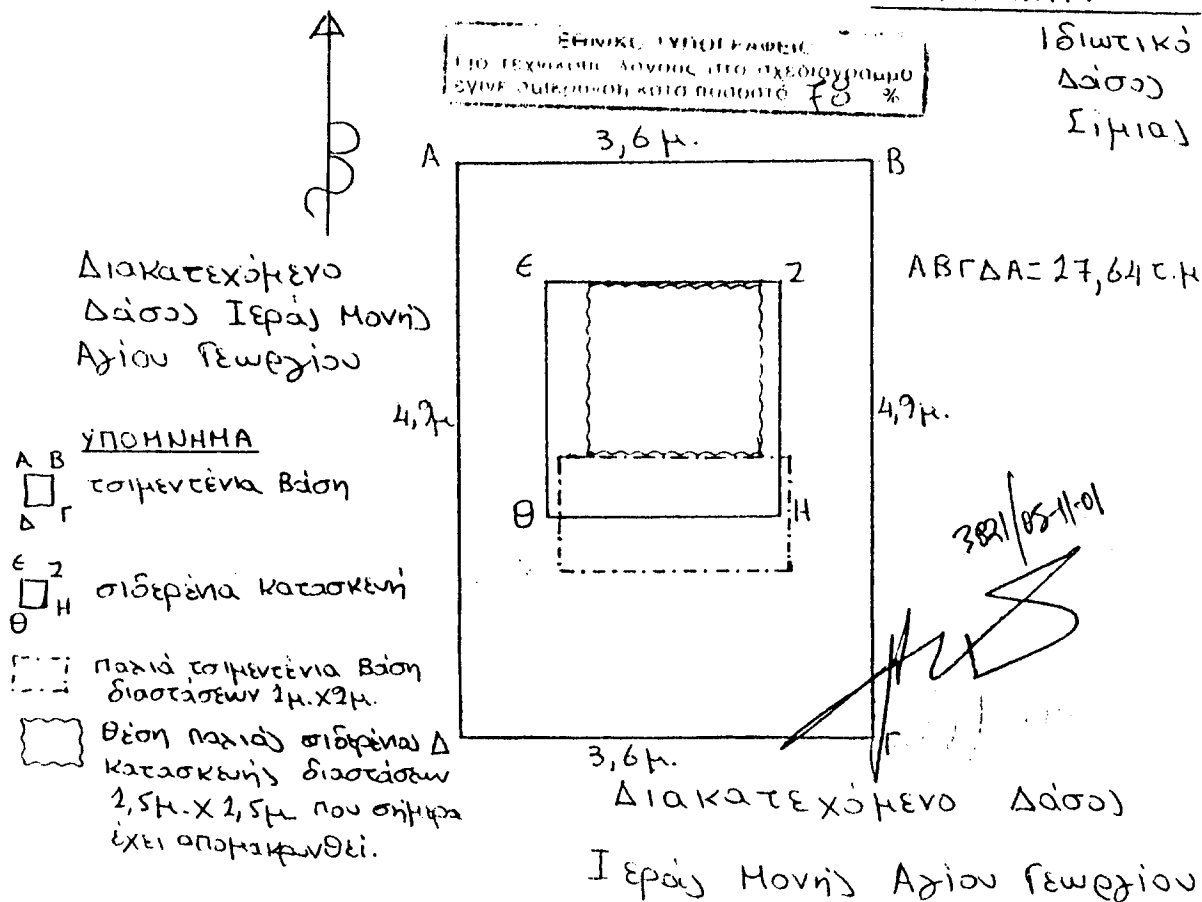 ΕΘΝΙΚΟ ΤΥΠΟΓΡΑΦΕΙΟ
Για τεχνικούς λόγους στο σχεδιάγραμμα
έγινε σμίκρυνση κατά ποσοστό 70 %
Ιδιωτικό
Δάσος
Σίμιας
Β
3,6 μ.
Α
Β
Διακατεχόμενο
Δάσος Ιεράς Μονής
Αγίου Γεωργίου
Ε
Ζ
ΑΒΓΔΑ= 17,64 τ.μ
4,9μ
4,9μ.
Θ
Η
ΥΠΟΜΝΗΜΑ
Α Β
Δ Γ
τσιμεντένια Βάση
Ε Ζ
Θ Η
σιδερένια κατασκευή
παλιά τσιμεντένια Βάση
διαστάσεων 1μ. Χ2μ.
Θέση παλιάς σιδερένιας
κατασκευής διαστάσεων
1,5μ. Χ 1,5μ. που σήμερα
έχει απομακρυνθεί.
3821/05-11-01
Δ
Γ
3,6μ.
Διακατεχόμενο Δάσος
Ιεράς Μονής Αγίου Γεωργίου